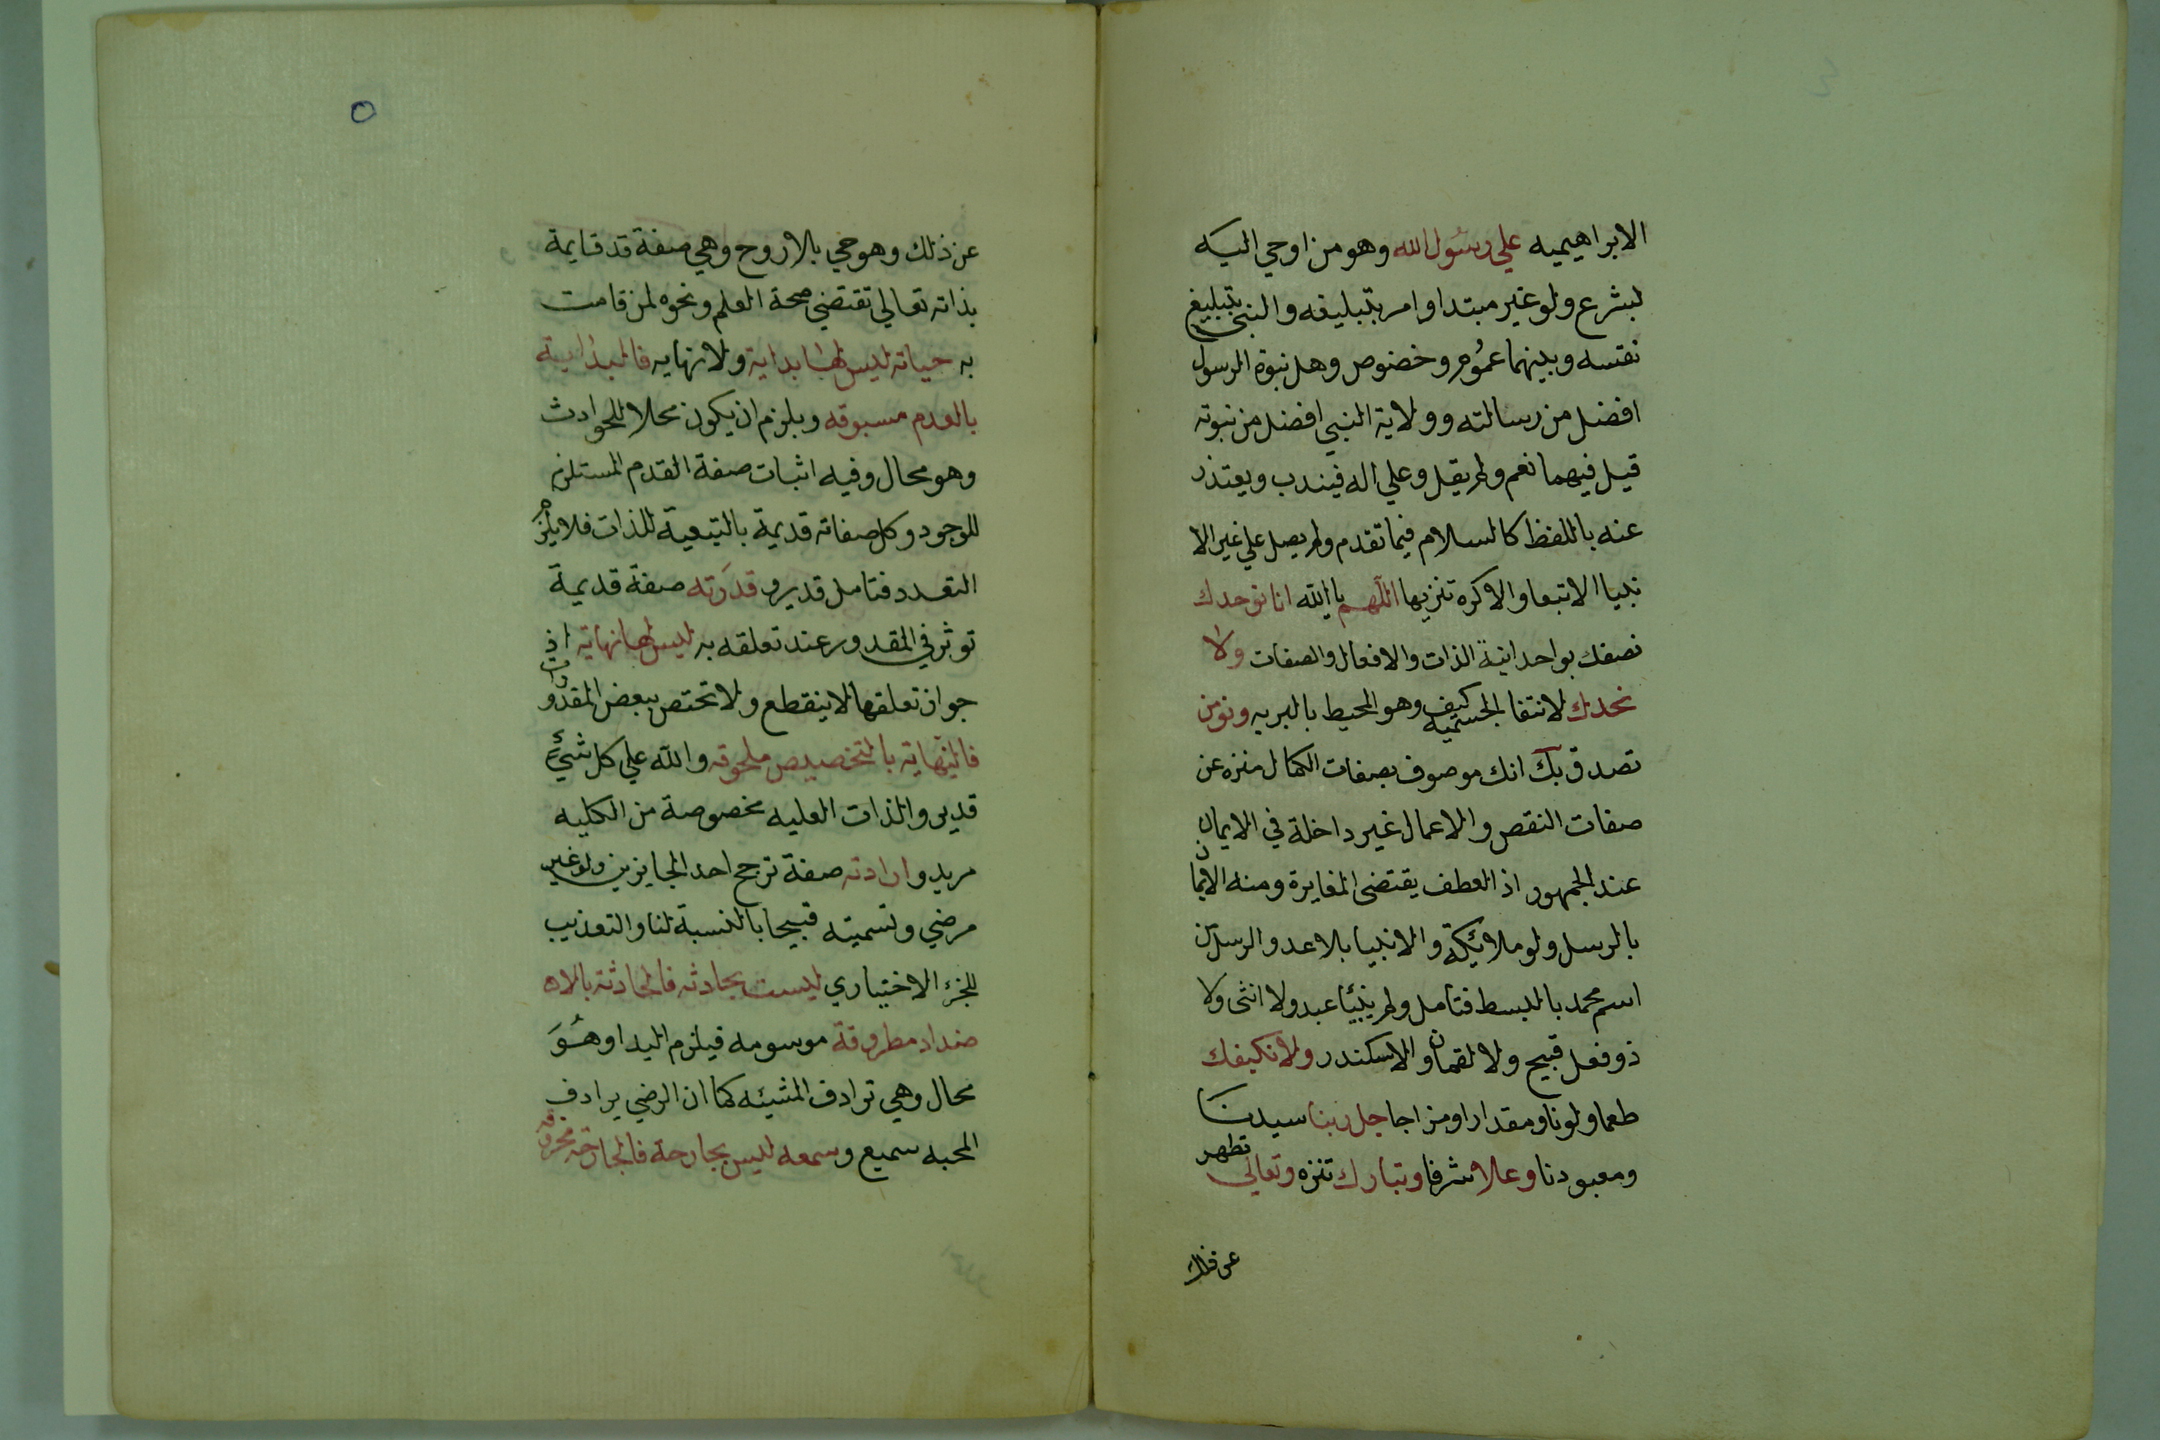 الابراهيميه علي رسول الله وهو من اوحي اليه
بشرع ولو غير مبتدا وامر بتبليغه والنبي بتبليغ
نفسه وبينهما عموم وخصوص وهل نبوة الرسول
افضل من رسالته وولاية النبي افضل من نبوته
قيل فيهما نعم ولم يقل وعلي اله فيندب ويعتذر
عنه باللفظ كالسلام فيما تقدم ولم يصل علي غير الا
نبيا الا تبعا والا كره تنزيها اللهم يا الله انا نوحدك
نصفك بواحدانية الذات والافعال والصفات ولا
نحدك لانتفا الجسميه كيف وهو المحيط بالبريه ونومن
نصدق بك انك موصوف بصفات الكمال منزه عن
صفات النقص والاعمال غير داخلة في الايمان
عند الجمهور اذ العطف يقتضي المغايرة ومنه الايمان
بالرسل ولو ملائكة والانبيا بلا عد والرسل من
اسم محمد بالبسط فتامل ولم ينبئا عبد ولا انثى ولا
ذو فعل قبيح ولا لقمان والاسكندر ولا نكيفك
طعما ولونا ومقدارا ومزاجا جل ربنا سيدنا
ومعبودنا وعلا شرفا وتبارك تنزه وتعالي تطهر
عن ذلك
٥
عن ذلك وهو حي بلا روح وهي صفة قد قايمة
بذاته تعالي تقتضي صحة العلم ونحوه لمن قامت
به حياته ليس لها بداية ولا نهايه فالبداية
بالعدم مسبوقه ويلزم ان يكون محلا للحوادث
وهو محال وفيه اثبات صفة القدم المستلزم
للوجود وكل صفاته قديمة بالتبعية للذات فلا يلزم
التعدد فتامل قدير وقدرته صفة قديمة
توثر في المقدور عند تعلقه به ليس لها نهاية اذ
جواز تعلقها لا ينقطع ولا تختص ببعض المقدورات
فالنهاية بالتخصيص ملحوقه والله علي كل شيء
قدير والذات العليه مخصوصة من الكليه
مريد وارادته صفة ترجح احد الجايزين ولو غير
مرضي وتسميته قبيحا بالنسبة لنا والتعذيب
للجزء الاختياري ليست بحادثه فالحادثة بالا
ضداد مطروقة موسومه فيلزم البدا وهو
محال وهي ترادف المشيئه كما ان الرضي يرادف
المحبه سميع وسمعه ليس بجارحة فالجارحة مخروقه